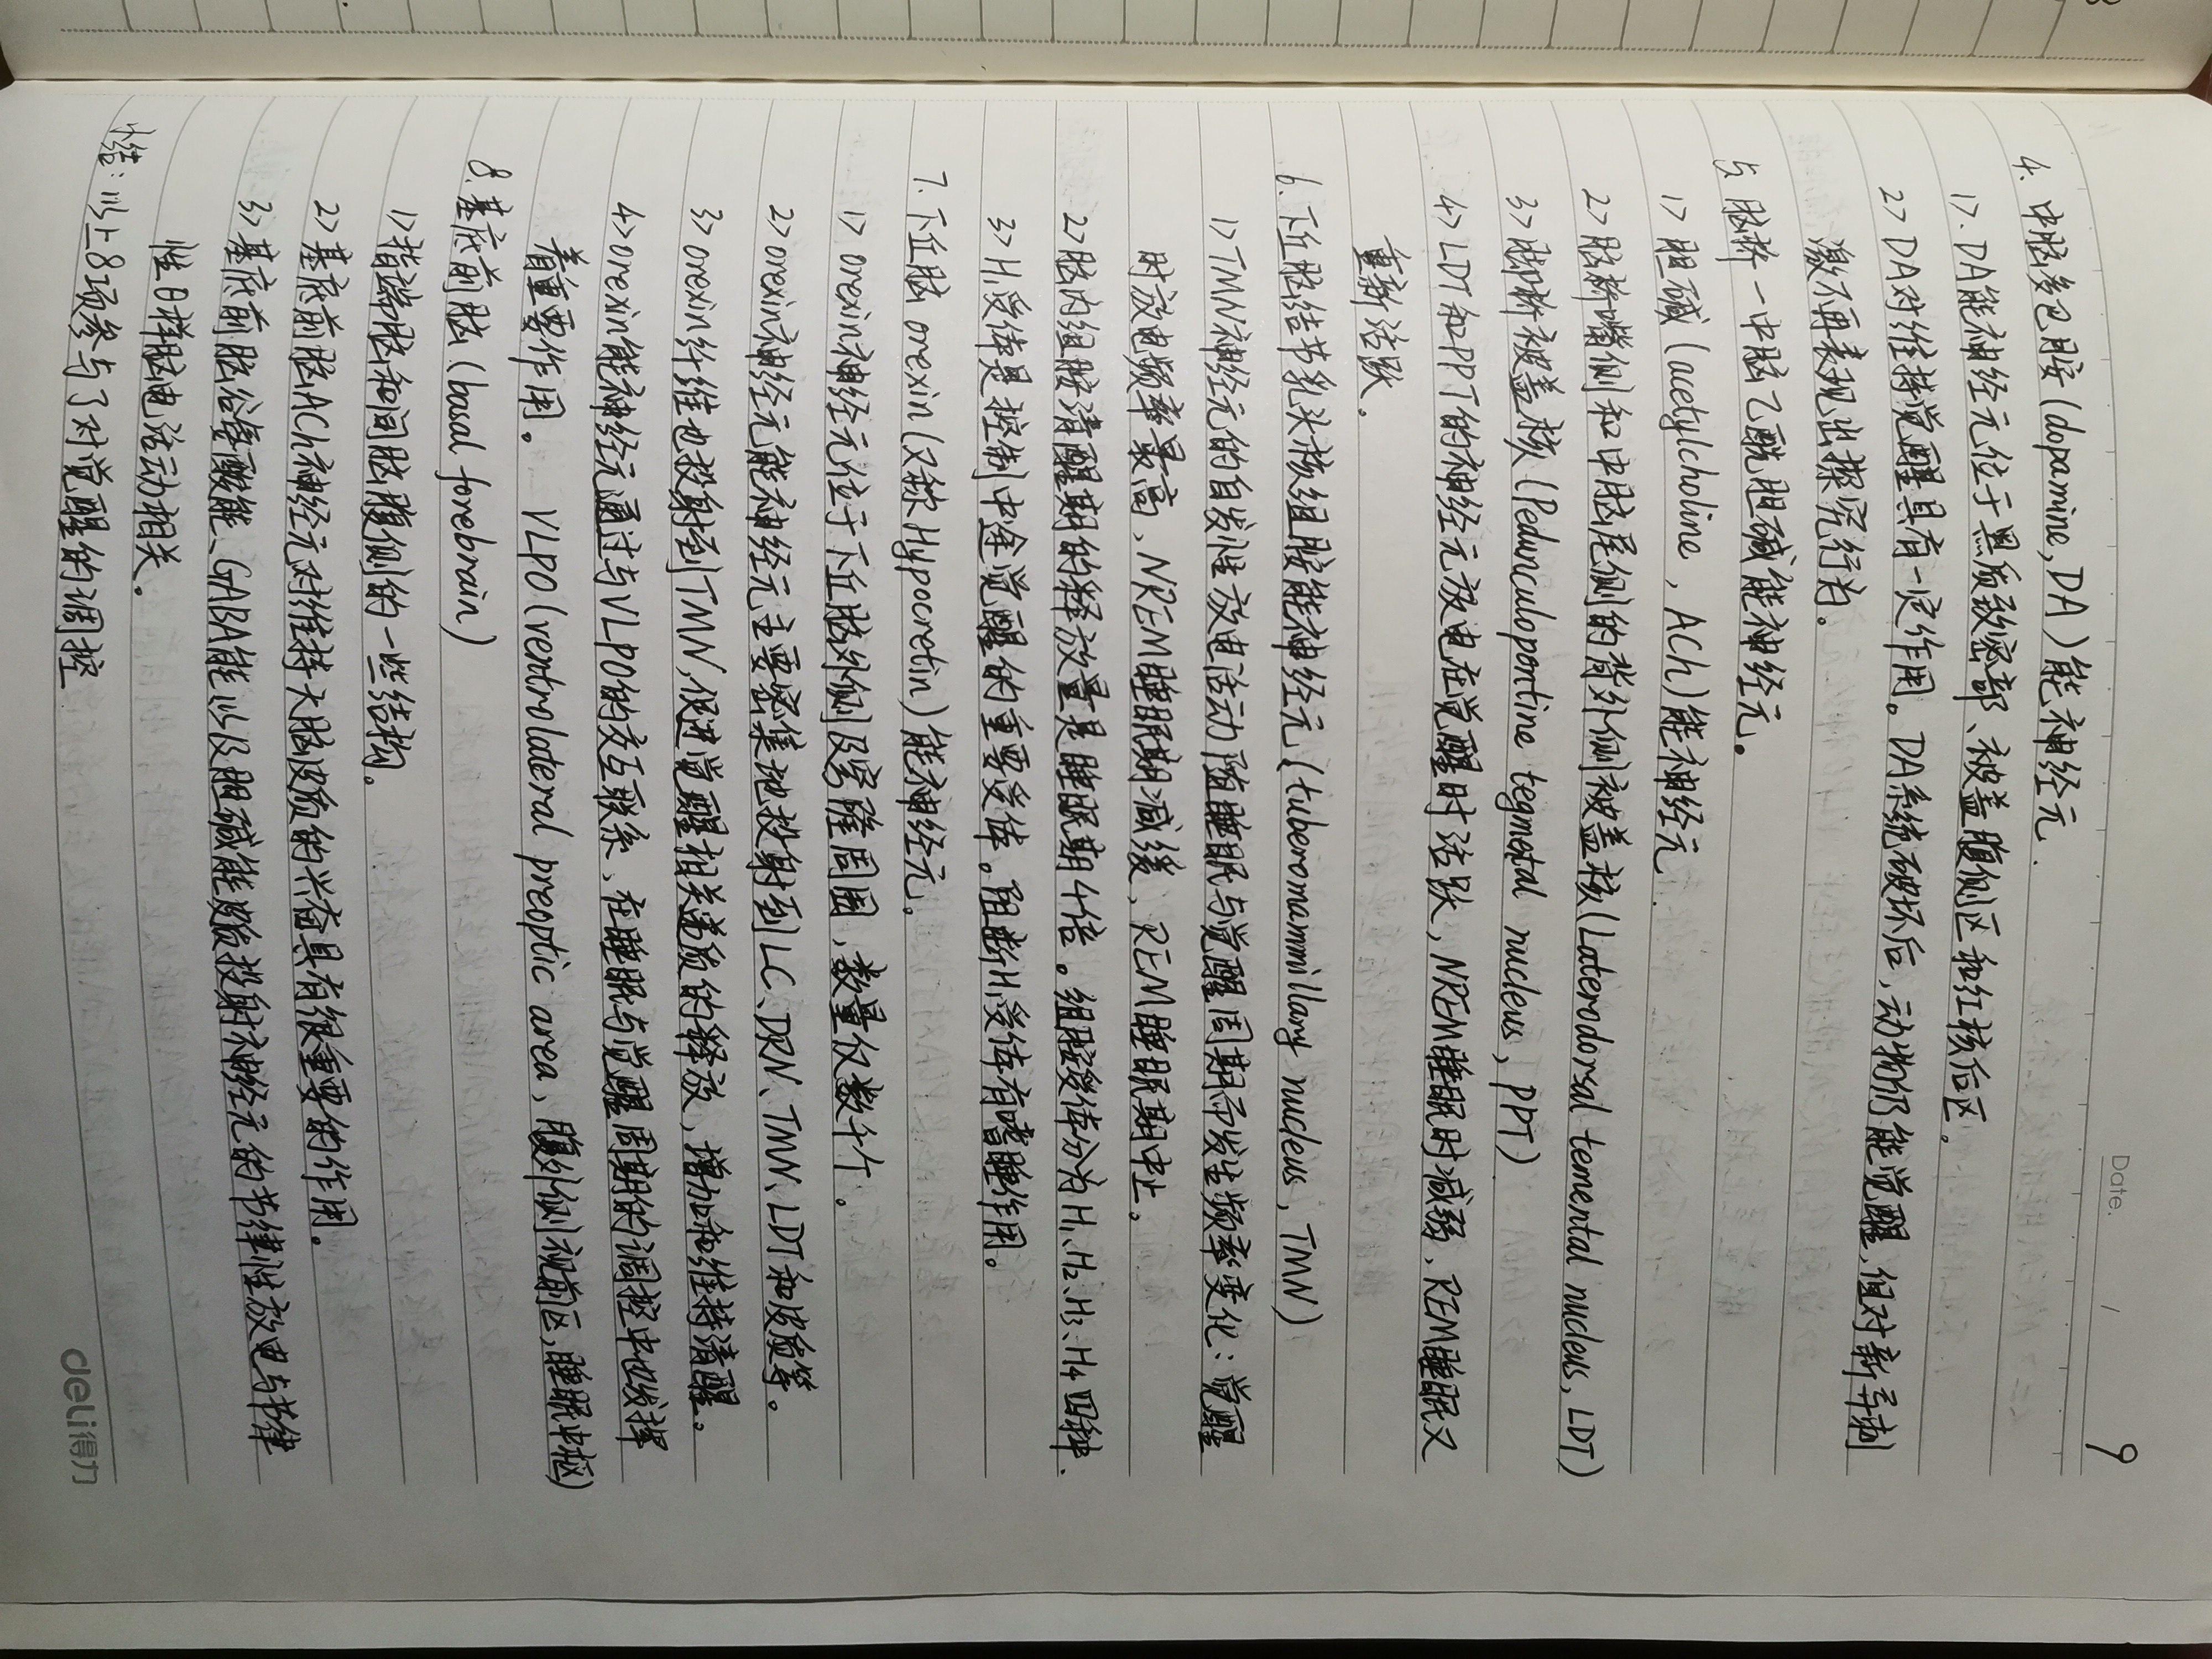 Date. /
9
4. 中脑多巴胺(dopamine, DA)能神经元.
1>. DA能神经元位于黑质致密部、被盖腹侧区和红核后区.
2> DA对维持觉醒具有一定作用。DA系统破坏后,动物仍能觉醒,但对新异刺
激不再表现出探究行为。
5. 脑桥—中脑乙酰胆碱能神经元。
1> 胆碱(acetylcholine, ACh)能神经元.
2> 脑桥嘴侧和中脑尾侧的背外侧被盖核(Laterodorsal temental nucleus, LDT)
3> 脚桥被盖核(Pedunculopontine tegmetal nucleus, PPT)
4> LDT和PPT的神经元放电在觉醒时活跃,NREM睡眠时减弱、REM睡眠又
重新活跃.
6. 下丘脑结节乳头核组胺能神经元(tuberomammillary nucleus, TMN)
1> TMN神经元的自发性放电活动随睡眠与觉醒周期而发生频率变化:觉醒
时放电频率最高、NREM睡眠期减缓,REM睡眠期中止。
2> 脑内组胺清醒期的释放量是睡眠期4倍。组胺受体分为H1、H2、H3、H4四种.
3> H1受体是控制中途觉醒的重要受体。阻断H1受体有嗜睡作用。
7. 下丘脑 orexin(又称Hypocretin)能神经元。
1> orexin神经元位于下丘脑外侧及穹窿周围,数量仅数千个。
2> orexin神经元能神经元主要密集地投射到LC、DRN、TMN、LDT和皮质等。
3> orexin纤维也投射到TMN,促进觉醒相关递质的释放,增加和维持清醒。
4> orexin能神经元通过与VLPO的交互联系、在睡眠与觉醒周期的调控中也发挥
着重要作用。 VLPO(ventrolateral preoptic area、腹外侧视前区,睡眠中枢)
8. 基底前脑(basal forebrain)
1> 指端脑和间脑腹侧的一些结构。
2> 基底前脑ACh神经元对维持大脑皮质的兴奋具有很重要的作用。
3> 基底前脑谷氨酸能、GABA能以及胆碱能投射神经元的节律性放电与节律
性θ样脑电活动相关。
小结:以上8项参与了对觉醒的调控
deli得力